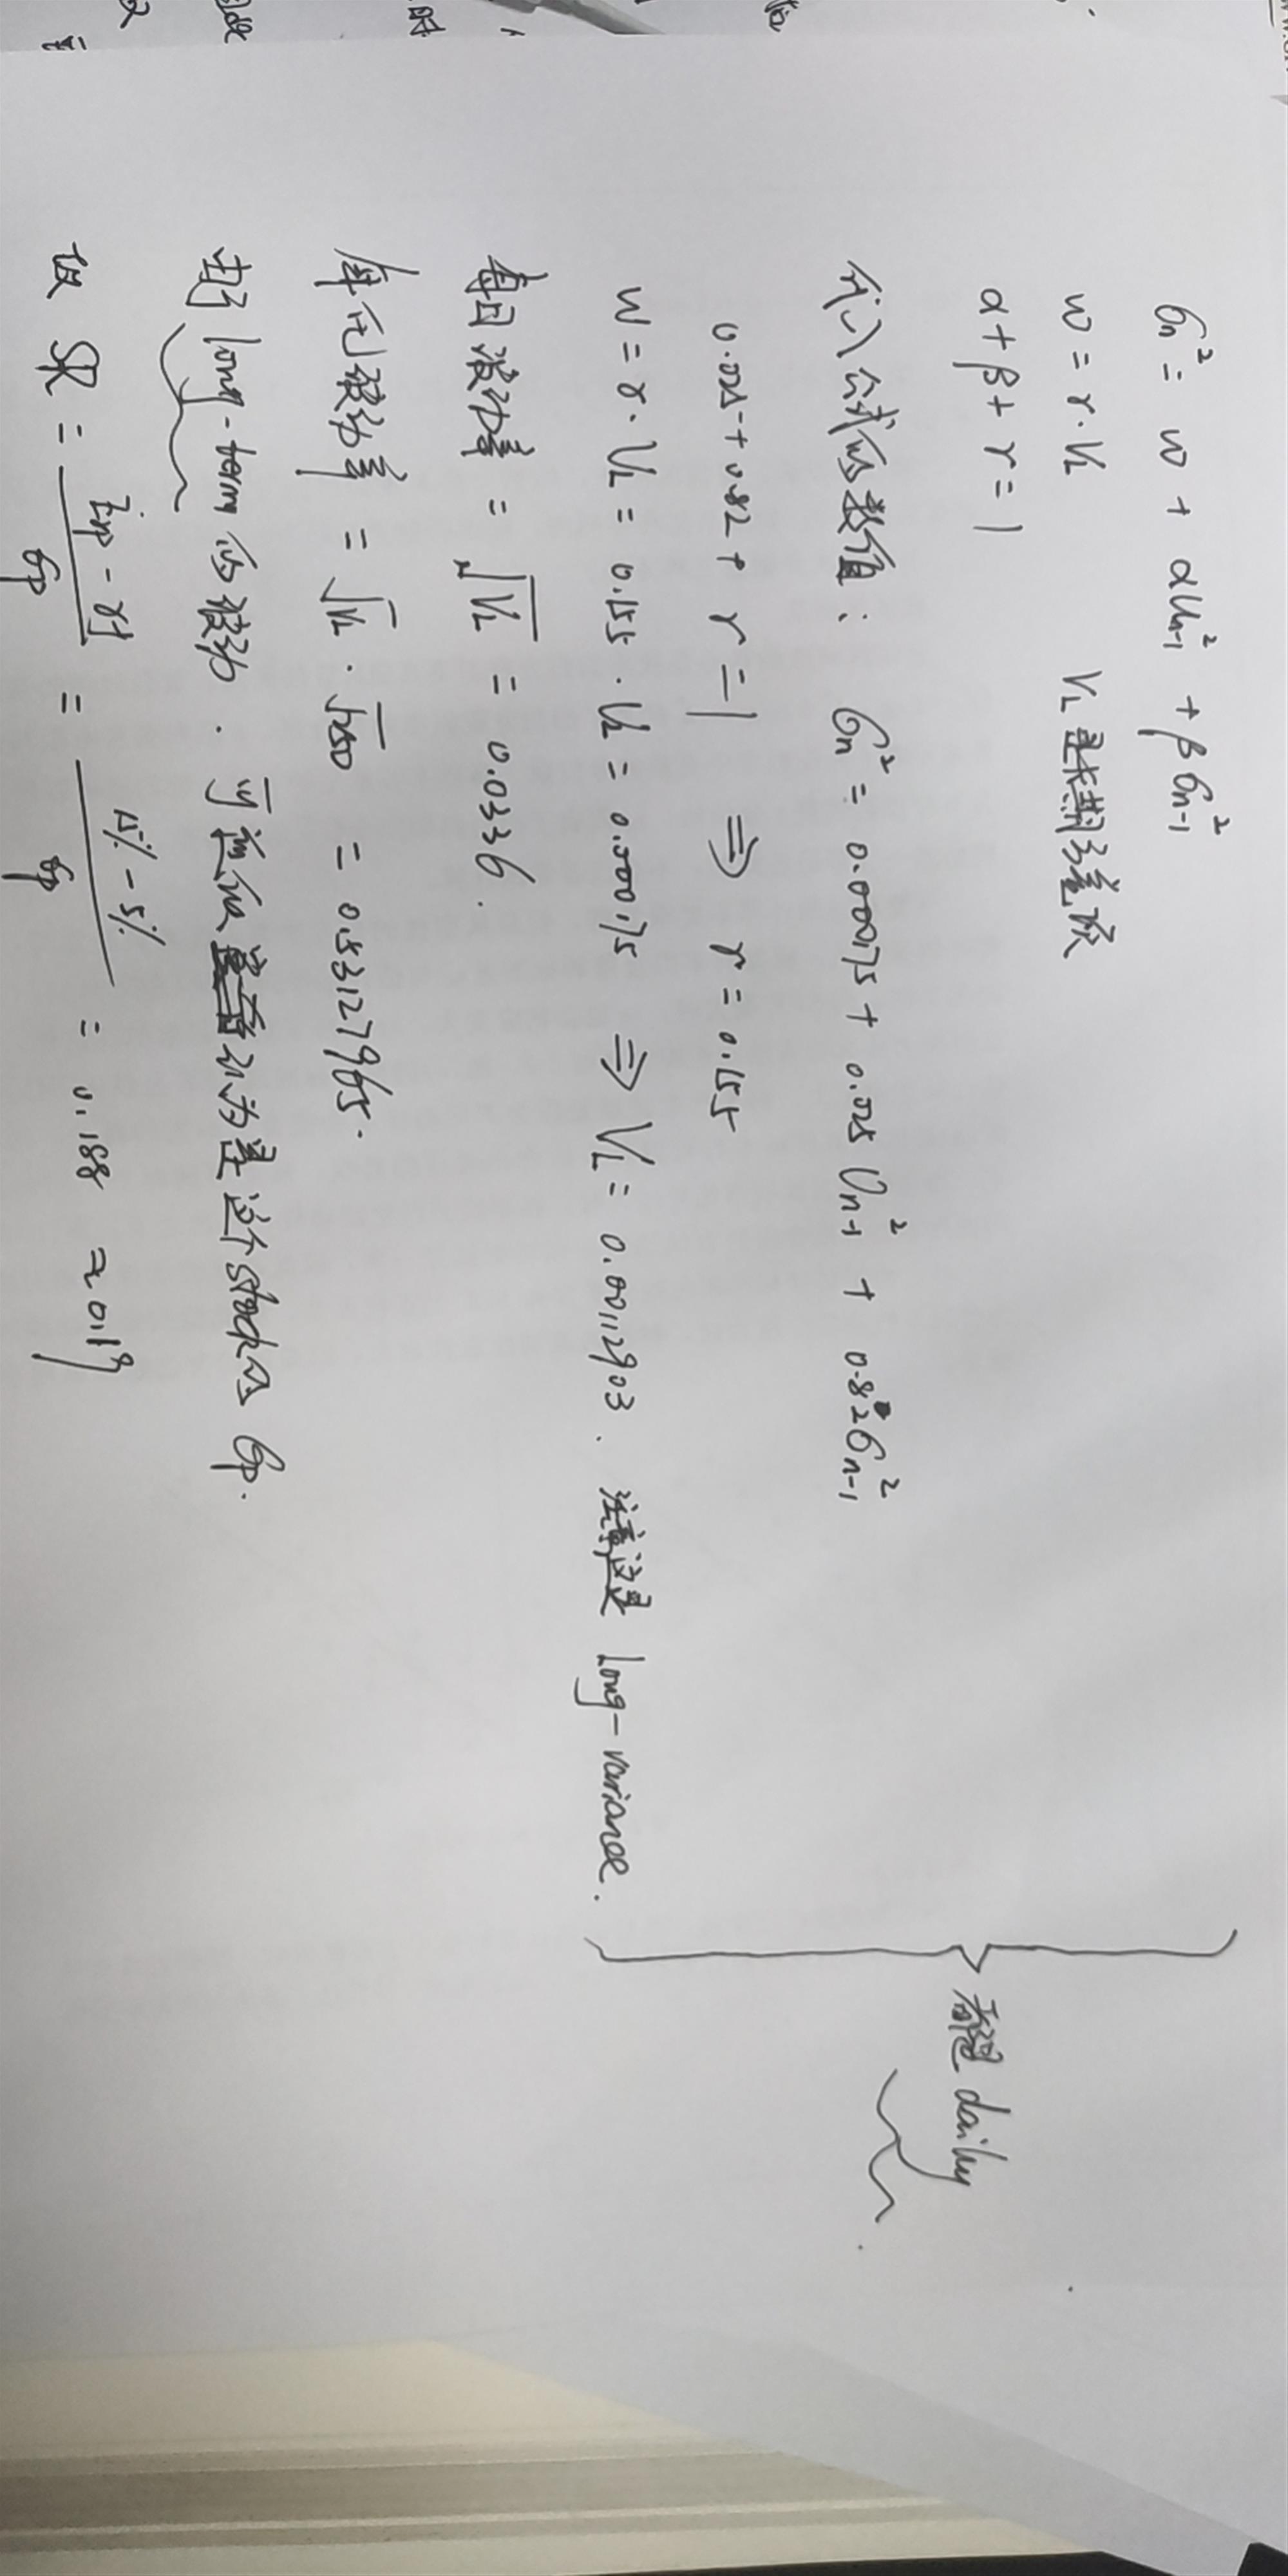 σn² = w + αUn-1² + βσn-1²
w = r·VL VL是长期方差项
α + β + r = 1
代入公式的数值: σn² = 0.000175 + 0.025Un-1² + 0.82σn-1²
0.025 + 0.82 + r = 1 ⇒ r = 0.155
w = r·VL = 0.155·VL = 0.000175 ⇒ VL = 0.00112903. 注意这是 Long-variance.
都是 daily
每日波动率 = √VL = 0.0336.
年化波动率 = √VL · √250 = 0.53127965.
由于 long-term 的波动. 可 认为是这个stock的 σp.
故 SR = (rp - rf)/σp = (15% - 5%)/σp = 0.188 ≈ 0.19